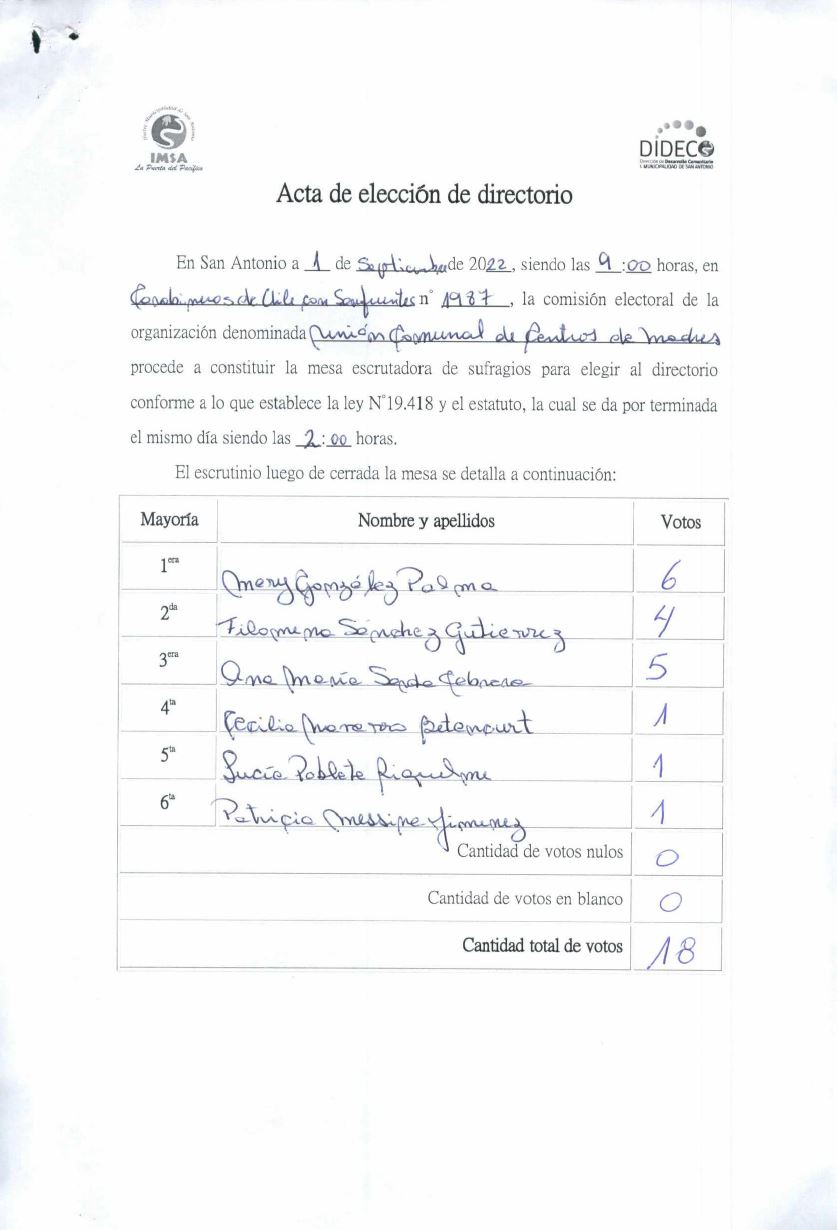 IMSA
La Puerta del Pacífico
DIDECO
Dirección de Desarrollo Comunitario
I. MUNICIPALIDAD DE SAN ANTONIO
Acta de elección de directorio
En San Antonio a 1 de Septiembre de 2022, siendo las 9:00 horas, en
Carabineros de Chile con Sanfuentes n° 1987, la comisión electoral de la
organización denominada Unión Comunal de Centros de Madres
procede a constituir la mesa escrutadora de sufragios para elegir al directorio
conforme a lo que establece la ley N°19.418 y el estatuto, la cual se da por terminada
el mismo día siendo las 2:00 horas.
El escrutinio luego de cerrada la mesa se detalla a continuación:
Mayoría Nombre y apellidos Votos
1era Mery González Palma 6
2da Filomena Sánchez Gutierrez 4
3era Ana María Cabrera 5
4ta Cecilia Betencourt 1
5ta Lucía Poblete Riquelme 1
6ta Patricia Messina Jimenez 1
Cantidad de votos nulos 0
Cantidad de votos en blanco 0
Cantidad total de votos 18